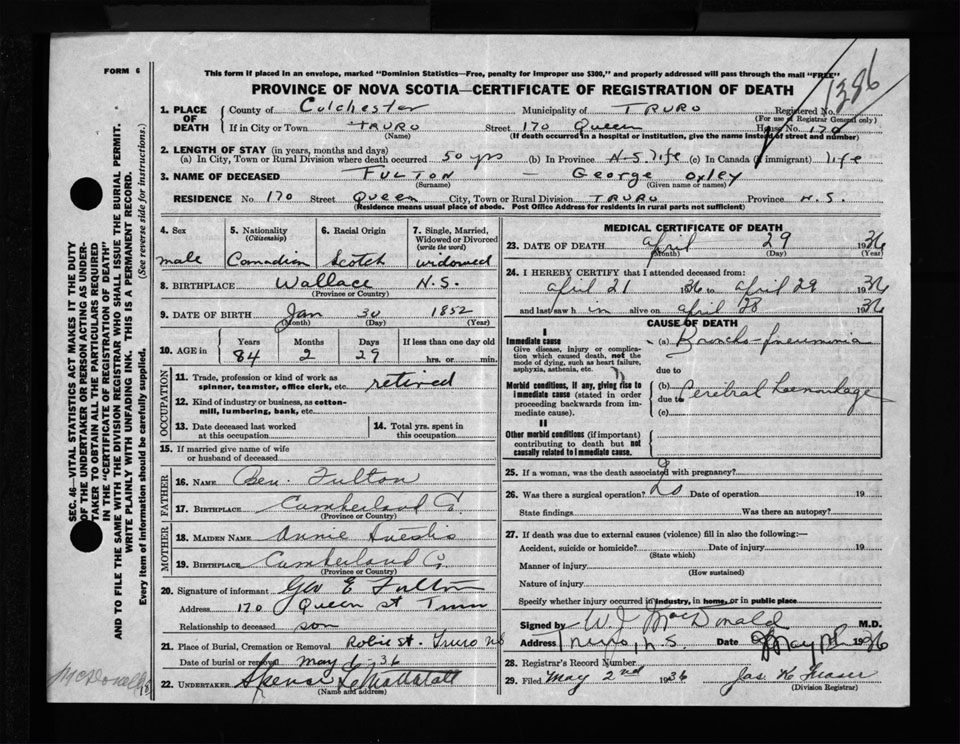 FORM 6
This form if placed in an envelope, marked "Dominion Statistics—Free, penalty for improper use $300," and properly addressed will pass through the mail "FREE"
PROVINCE OF NOVA SCOTIA—CERTIFICATE OF REGISTRATION OF DEATH
1386
1. PLACE OF DEATH County of Colchester Municipality of TRURO Registered No.
(For use of Registrar General only)
If in City or Town TRURO Street 170 Queen House No. 170
(Name) (If death occurred in a hospital or institution, give the name instead of street and number)
2. LENGTH OF STAY (in years, months and days)
(a) In City, Town or Rural Division where death occurred 50 yrs (b) In Province N-S. life (c) In Canada (if immigrant) life
3. NAME OF DECEASED FULTON — George Oxley
(Surname) (Given name or names)
RESIDENCE No. 170 Street Queen City, Town or Rural Division TRURO Province N.S.
(Residence means usual place of abode. Post Office Address for residents in rural parts not sufficient)
4. Sex 5. Nationality (Citizenship) 6. Racial Origin 7. Single, Married, Widowed or Divorced (write the word)
male Canadian Scotch widowed
8. BIRTHPLACE Wallace N.S.
(Province or Country)
9. DATE OF BIRTH Jan 30 1852
(Month) (Day) (Year)
10. AGE in Years Months Days If less than one day old
84 2 29 hrs. or min.
OCCUPATION
11. Trade, profession or kind of work as spinner, teamster, office clerk, etc. retired
12. Kind of industry or business, as cotton-mill, lumbering, bank, etc.
13. Date deceased last worked at this occupation 14. Total yrs. spent in this occupation
15. If married give name of wife or husband of deceased
FATHER
16. NAME Ben. Fulton
17. BIRTHPLACE Cumberland Co.
(Province or Country)
MOTHER
18. MAIDEN NAME Annie
19. BIRTHPLACE Cumberland Co.
(Province or Country)
20. Signature of informant Geo E Fulton
Address 170 Queen st Truro
Relationship to deceased son
21. Place of Burial, Cremation or Removal Robie St. Truro NS
Date of burial or removal May 36
22. UNDERTAKER
(Name and address)
MEDICAL CERTIFICATE OF DEATH
23. DATE OF DEATH April 29 1936
(Month) (Day) (Year)
24. I HEREBY CERTIFY that I attended deceased from:
April 21 1936 to April 29 1936
and last saw him alive on April 28 1936
CAUSE OF DEATH
I
Immediate cause (a) Broncho-pneumonia
Give disease, injury or complication which caused death, not the mode of dying, such as heart failure, asphyxia, asthenia, etc.
due to
Morbid conditions, if any, giving rise to immediate cause (stated in order proceeding backwards from immediate cause).
(b) Cerebral Haemorrhage
due to
(c)
II
Other morbid conditions (if important) contributing to death but not causally related to immediate cause.
25. If a woman, was the death associated with pregnancy?
26. Was there a surgical operation? No Date of operation 19
State findings Was there an autopsy?
27. If death was due to external causes (violence) fill in also the following:—
Accident, suicide or homicide? Date of injury 19
(State which)
Manner of injury
(How sustained)
Nature of injury
Specify whether injury occurred in industry, in home, or in public place
Signed by W. J. McDonald M.D.
Address Truro, N.S. Date May 1936
28. Registrar's Record Number
29. Filed May 2nd 1936 Jas. K Fraser
(Division Registrar)
SEC. 46—VITAL STATISTICS ACT MAKES IT THE DUTY
OF THE UNDERTAKER OR PERSON ACTING AS UNDERTAKER TO OBTAIN ALL THE PARTICULARS REQUIRED
IN THE "CERTIFICATE OF REGISTRATION OF DEATH"
AND TO FILE THE SAME WITH THE DIVISION REGISTRAR WHO SHALL ISSUE THE BURIAL PERMIT.
WRITE PLAINLY WITH UNFADING INK. THIS IS A PERMANENT RECORD.
Every item of information should be carefully supplied. (See reverse side for instructions.)